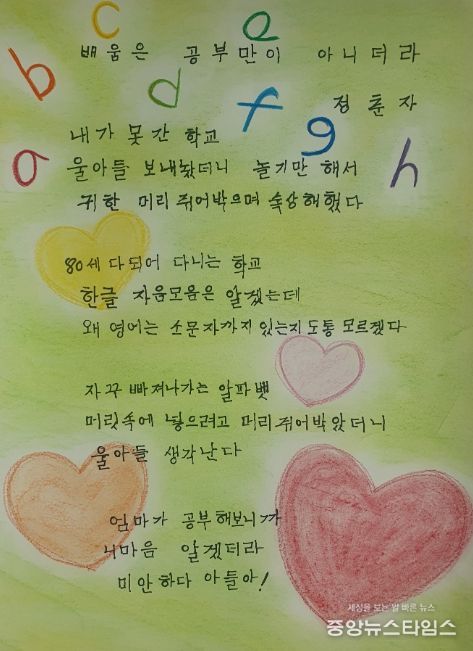 a b c d e f g h
배움은 공부만이 아니더라
정춘자
내가 못간 학교
울아들 보내놨더니 놀기만 해서
귀한 머리 쥐어박으며 속상해했다
80세 다되어 다니는 학교
한글 자음모음은 알겠는데
왜 영어는 소문자까지 있는지 도통 모르겠다
자꾸 빠져나가는 알파벳
머릿속에 넣으려고 머리 쥐어박았더니
울아들 생각난다
엄마가 공부해보니까
니마음 알겠더라
미안하다 아들아!
세상을 보는 발 빠른 뉴스
중앙뉴스타임스